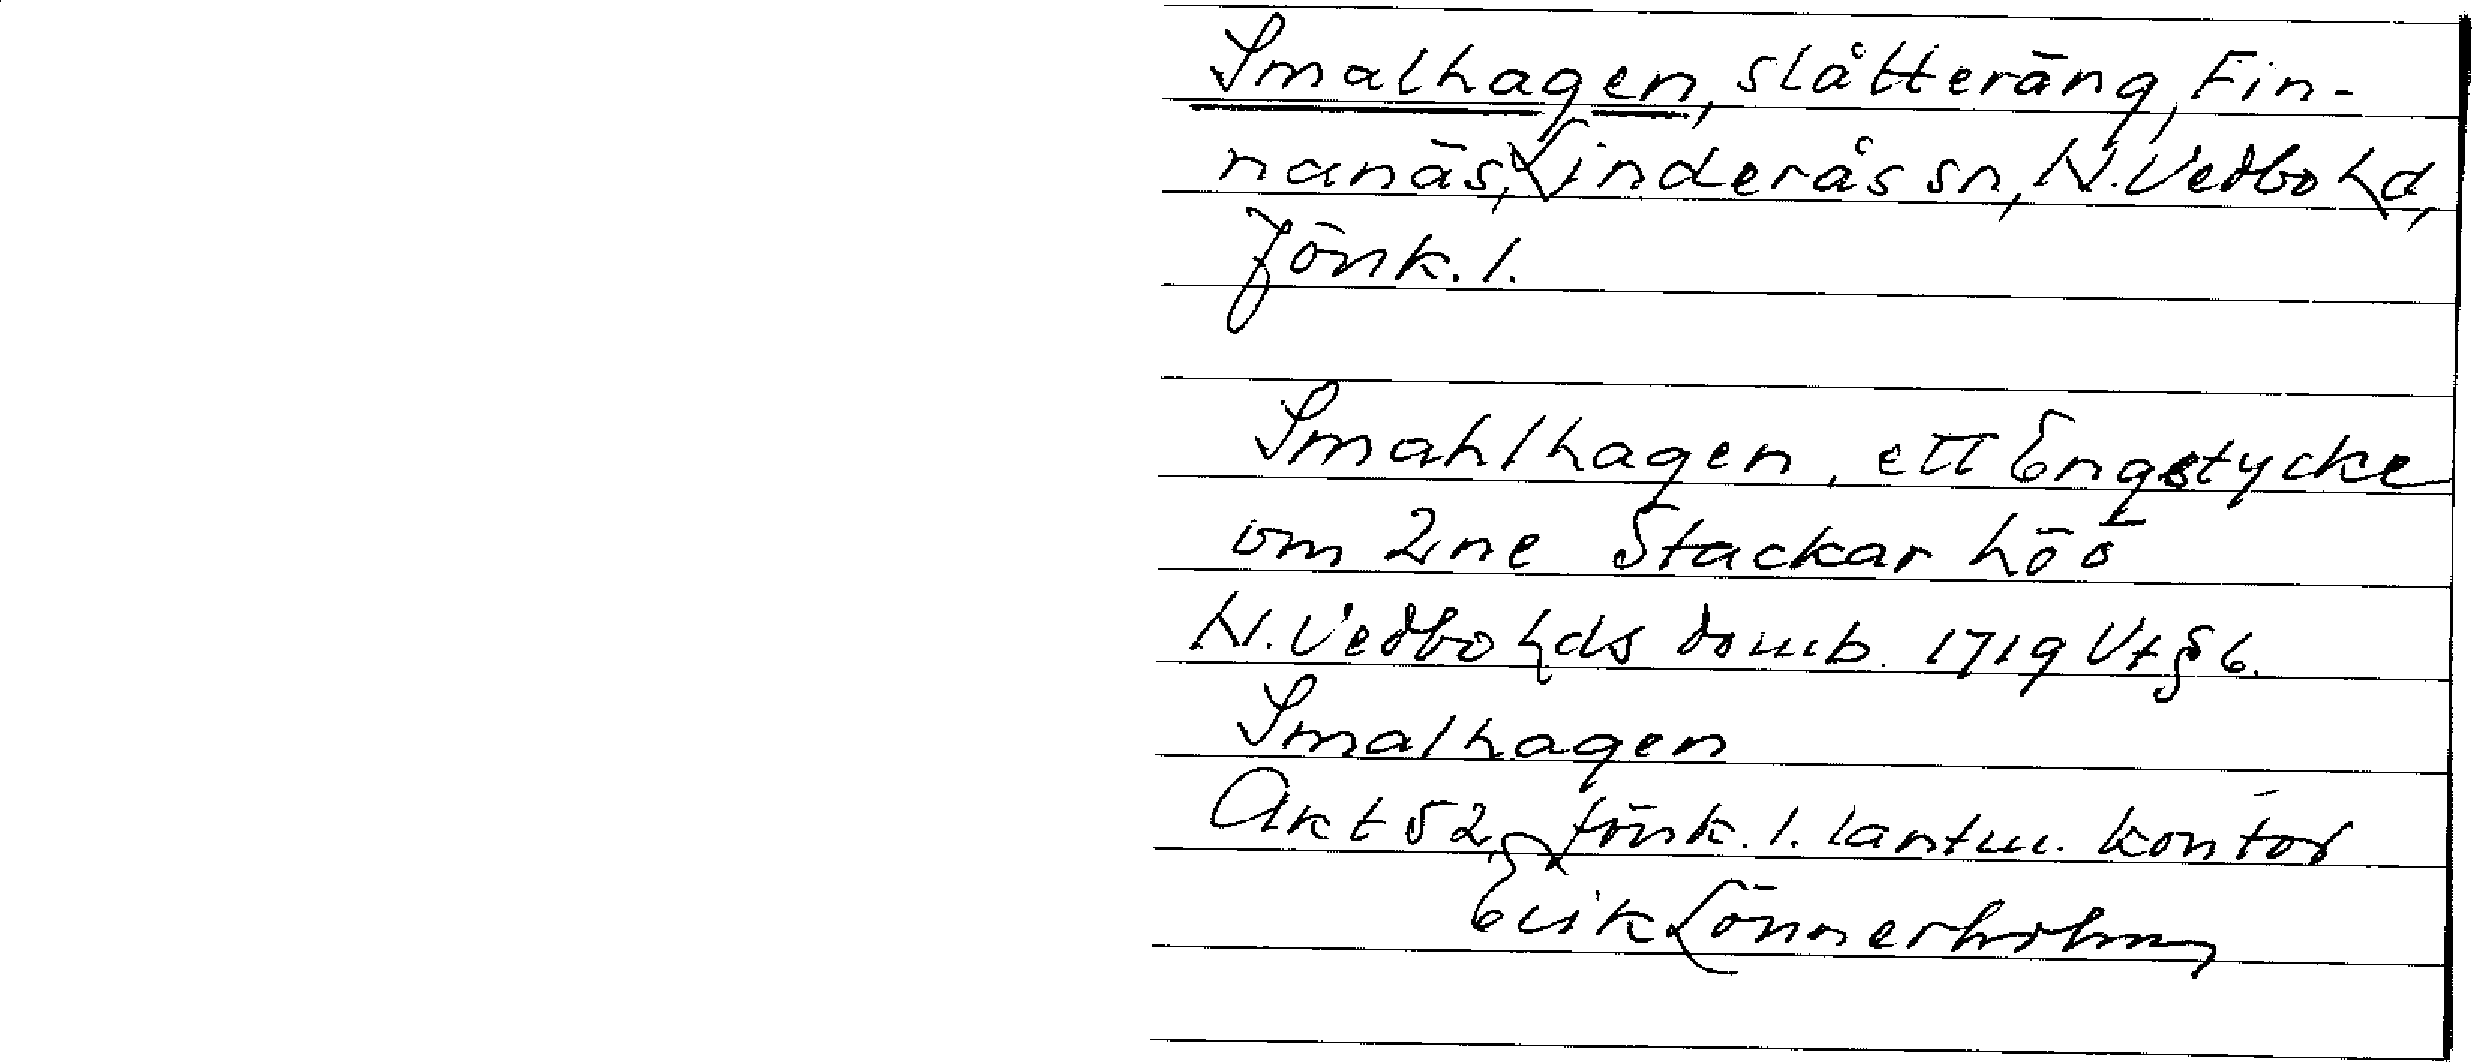 Smalhagen, slåtteräng, Fin-
nanäs, Linderås sn, N. Vedbo hd,
Jönk. l.
Smahlhagen, ett Engstycke
om 2ne Stackar höö
N. Vedbo hds domb. 1719 Vt § 6.
Smalhagen
Akt 52, Jönk. l. lantm. kontor
Erik Lönnerholm